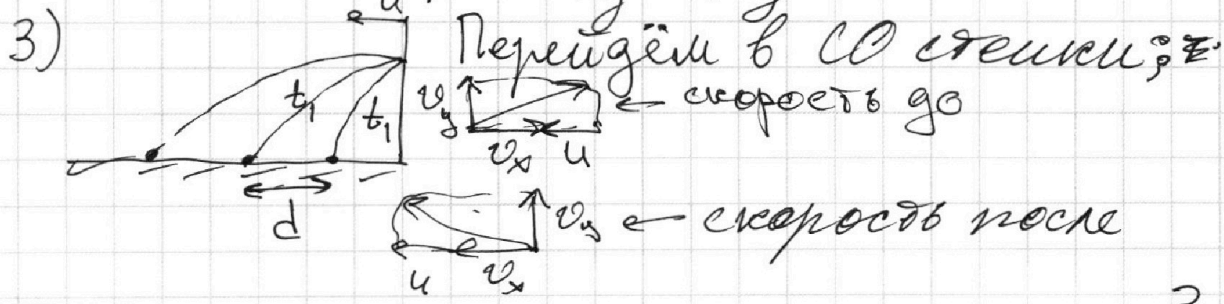 u
3) Перейдём в СО стенки;
t₁ t₁ v_y ← скорость до
v_x u
d v_y ← скорость после
u v_x